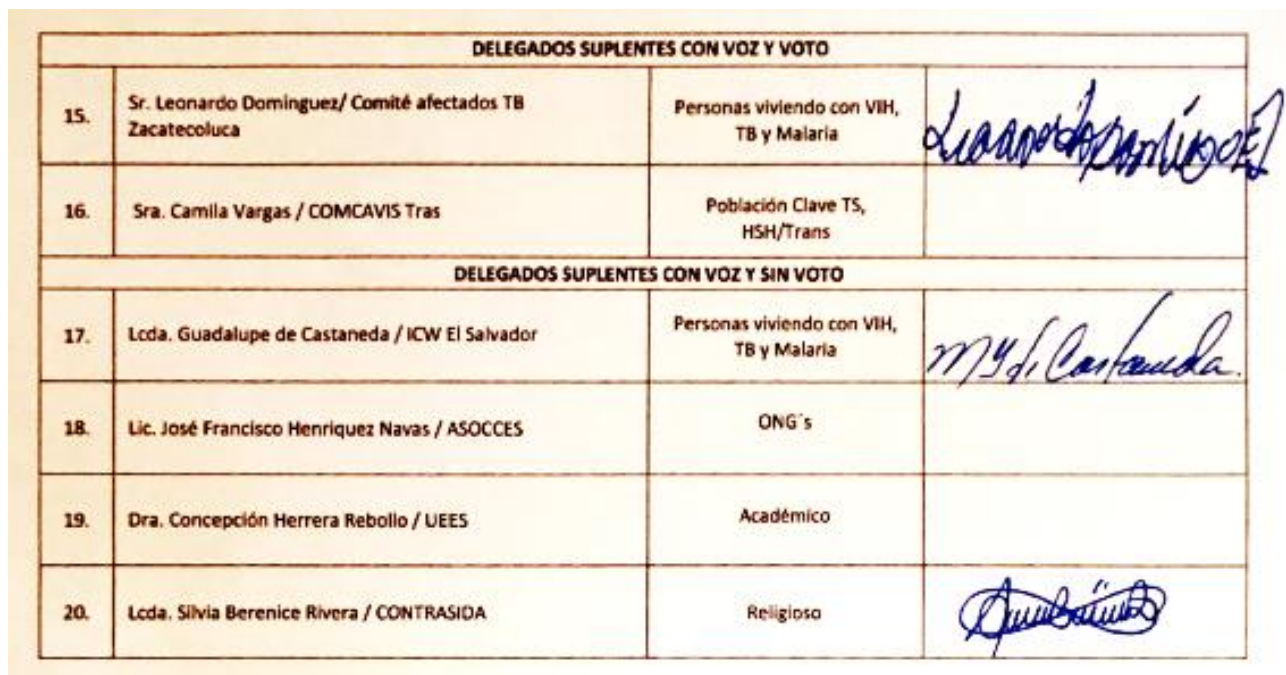 DELEGADOS SUPLENTES CON VOZ Y VOTO
15.
Sr. Leonardo Dominguez/ Comité afectados TB
Zacatecoluca
Personas viviendo con VIH,
TB y Malaria
Leonardo Domínguez
16.
Sra. Camila Vargas / COMCAVIS Tras
Población Clave TS,
HSH/Trans
DELEGADOS SUPLENTES CON VOZ Y SIN VOTO
17.
Lcda. Guadalupe de Castaneda / ICW El Salvador
Personas viviendo con VIH,
TB y Malaria
de Castaneda
18.
Lic. José Francisco Henriquez Navas / ASOCCES
ONG´s
19.
Dra. Concepción Herrera Rebollo / UEES
Académico
20.
Lcda. Silvia Berenice Rivera / CONTRASIDA
Religioso